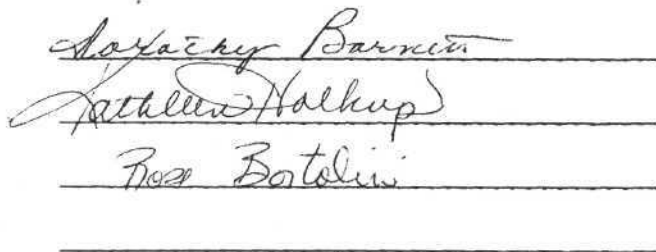 Dorothy Barnett
Kathleen Holkup
Rose Bortolini